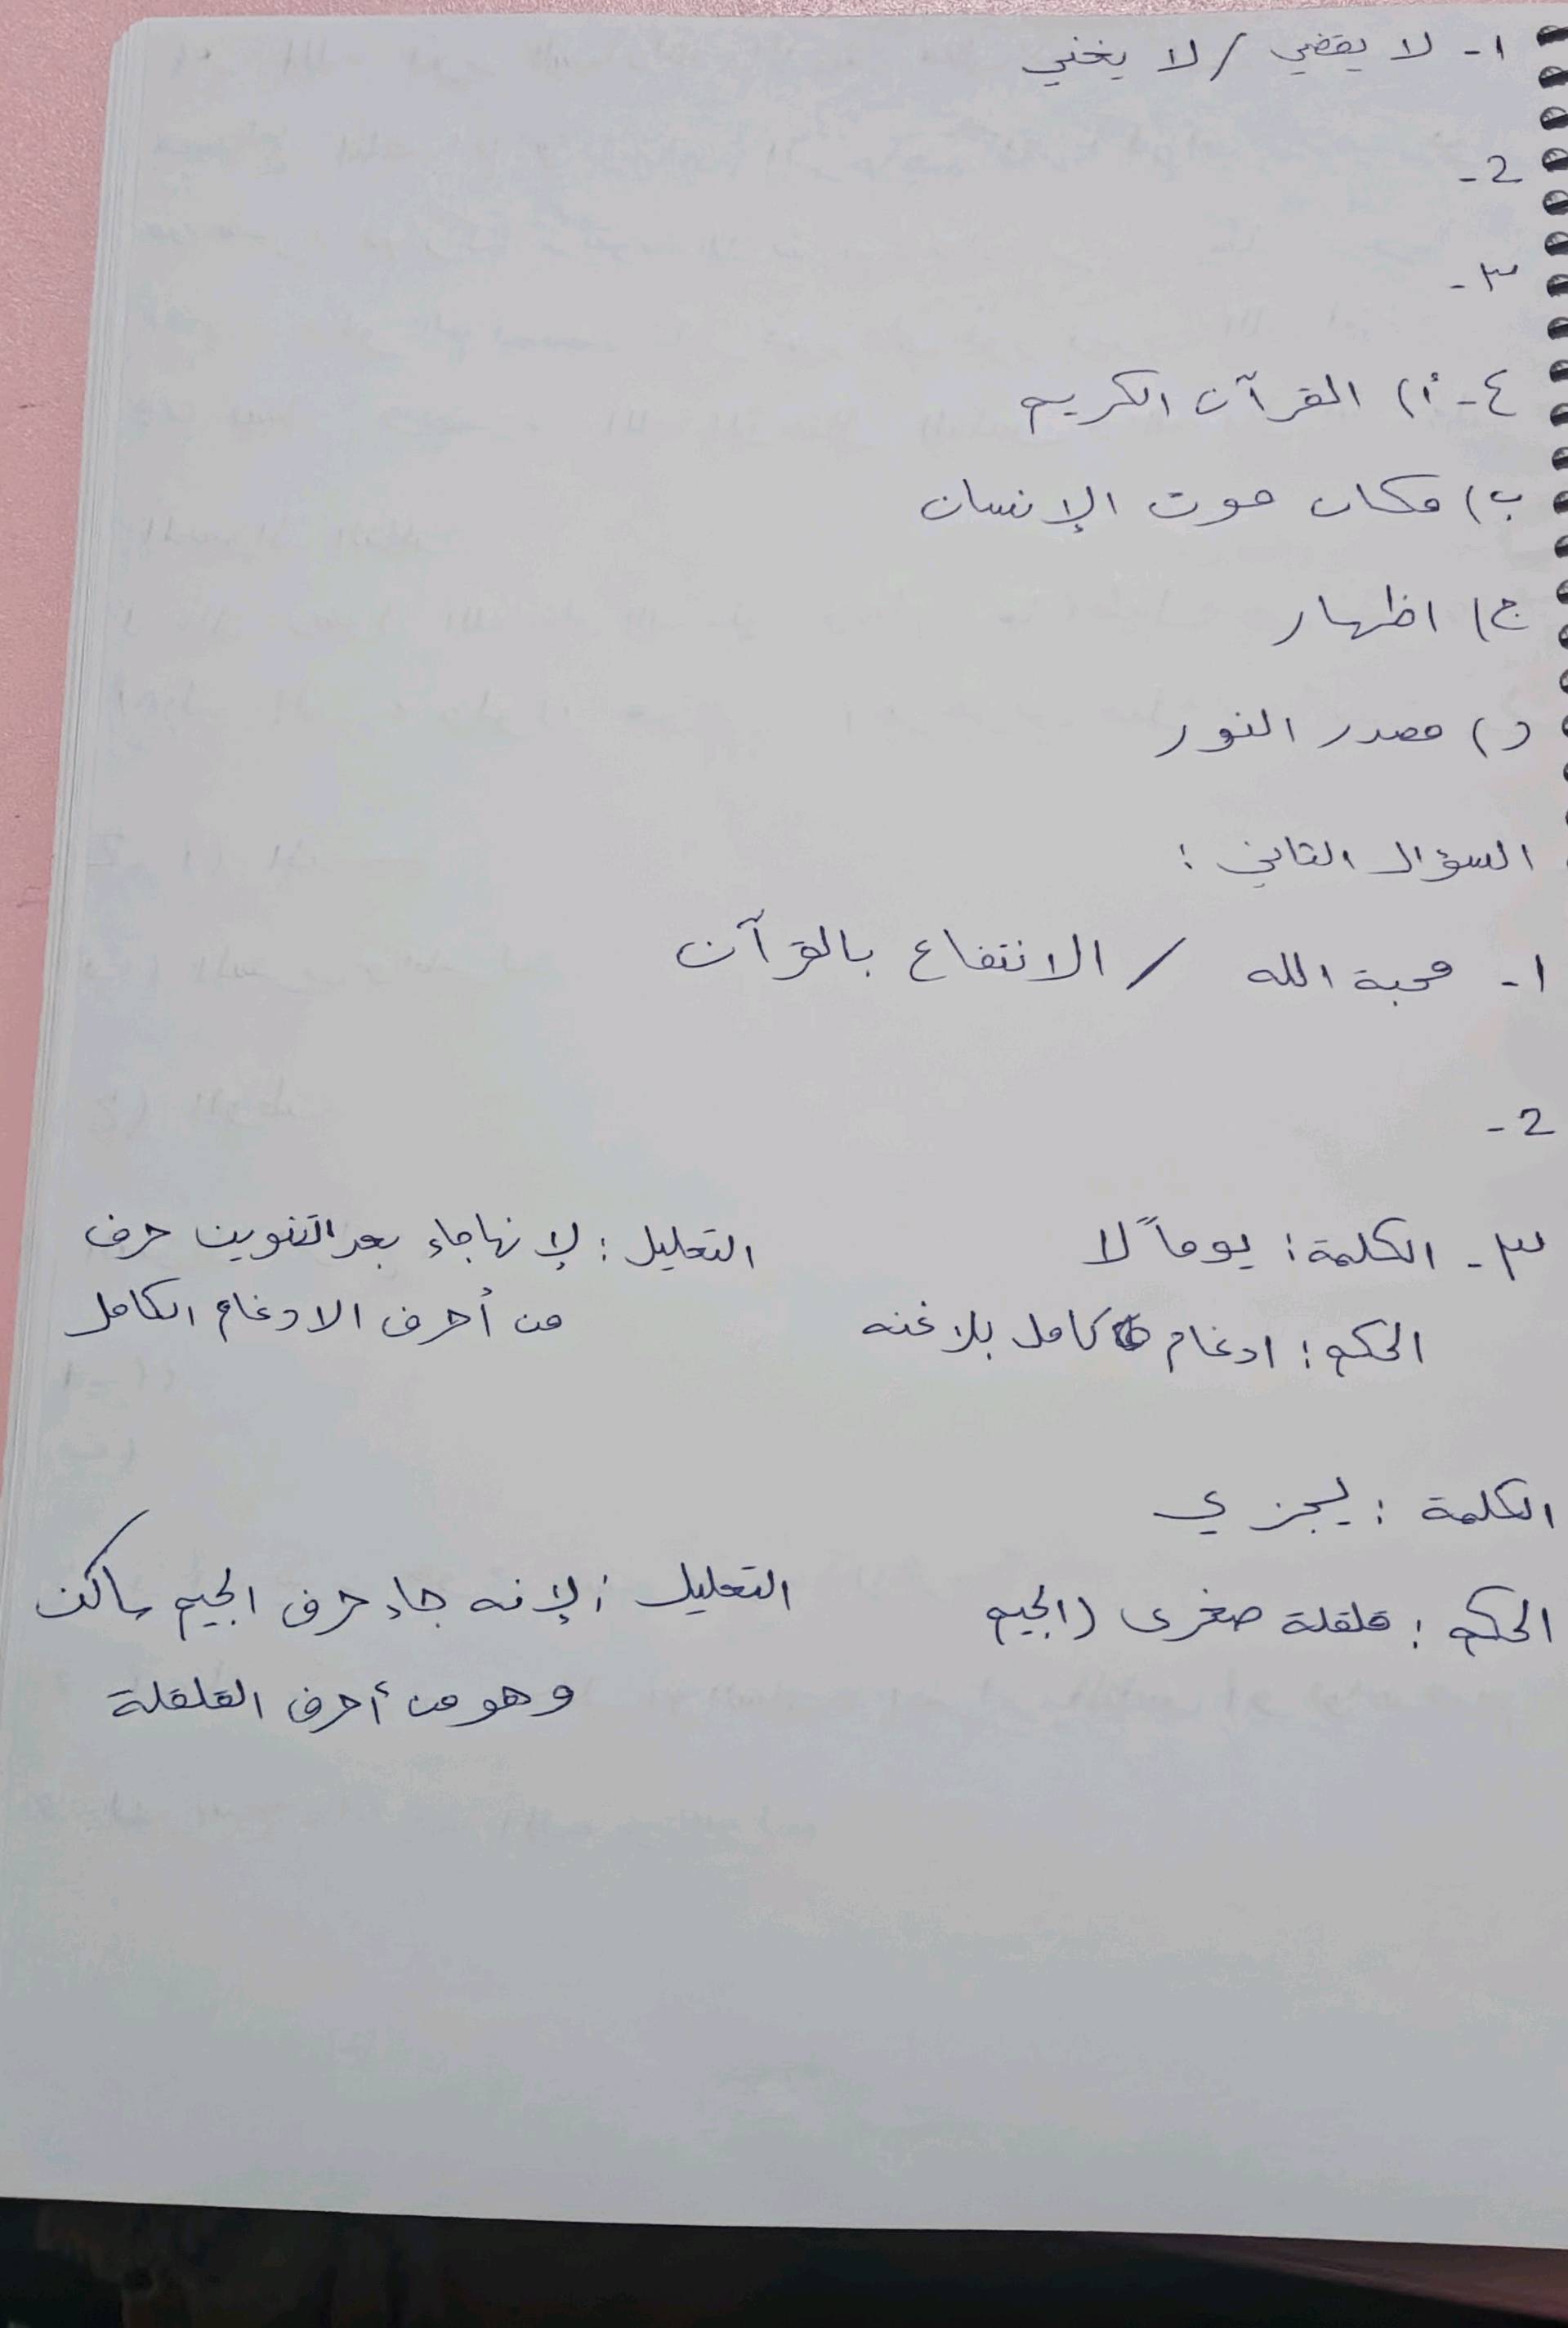 ١- لا يقضي / لا يغني
2-
٣-
٤- أ) القرآن الكريم
ب) مكان موت الإنسان
ج) اظهار
د) مصدر النور
السؤال الثاني :
١- محبة الله / الانتفاع بالقرآن
2-
٣- الكلمة : يوماً لا
الحكم : ادغام كامل بلا غنه
التعليل : لإنها جاء بعد التنوين حرف
من أحرف الادغام الكامل
الكلمة : يجزي
الحكم : قلقلة صغرى (الجيم
التعليل : لإنه جاء حرف الجيم ساكن
وهو من أحرف القلقلة